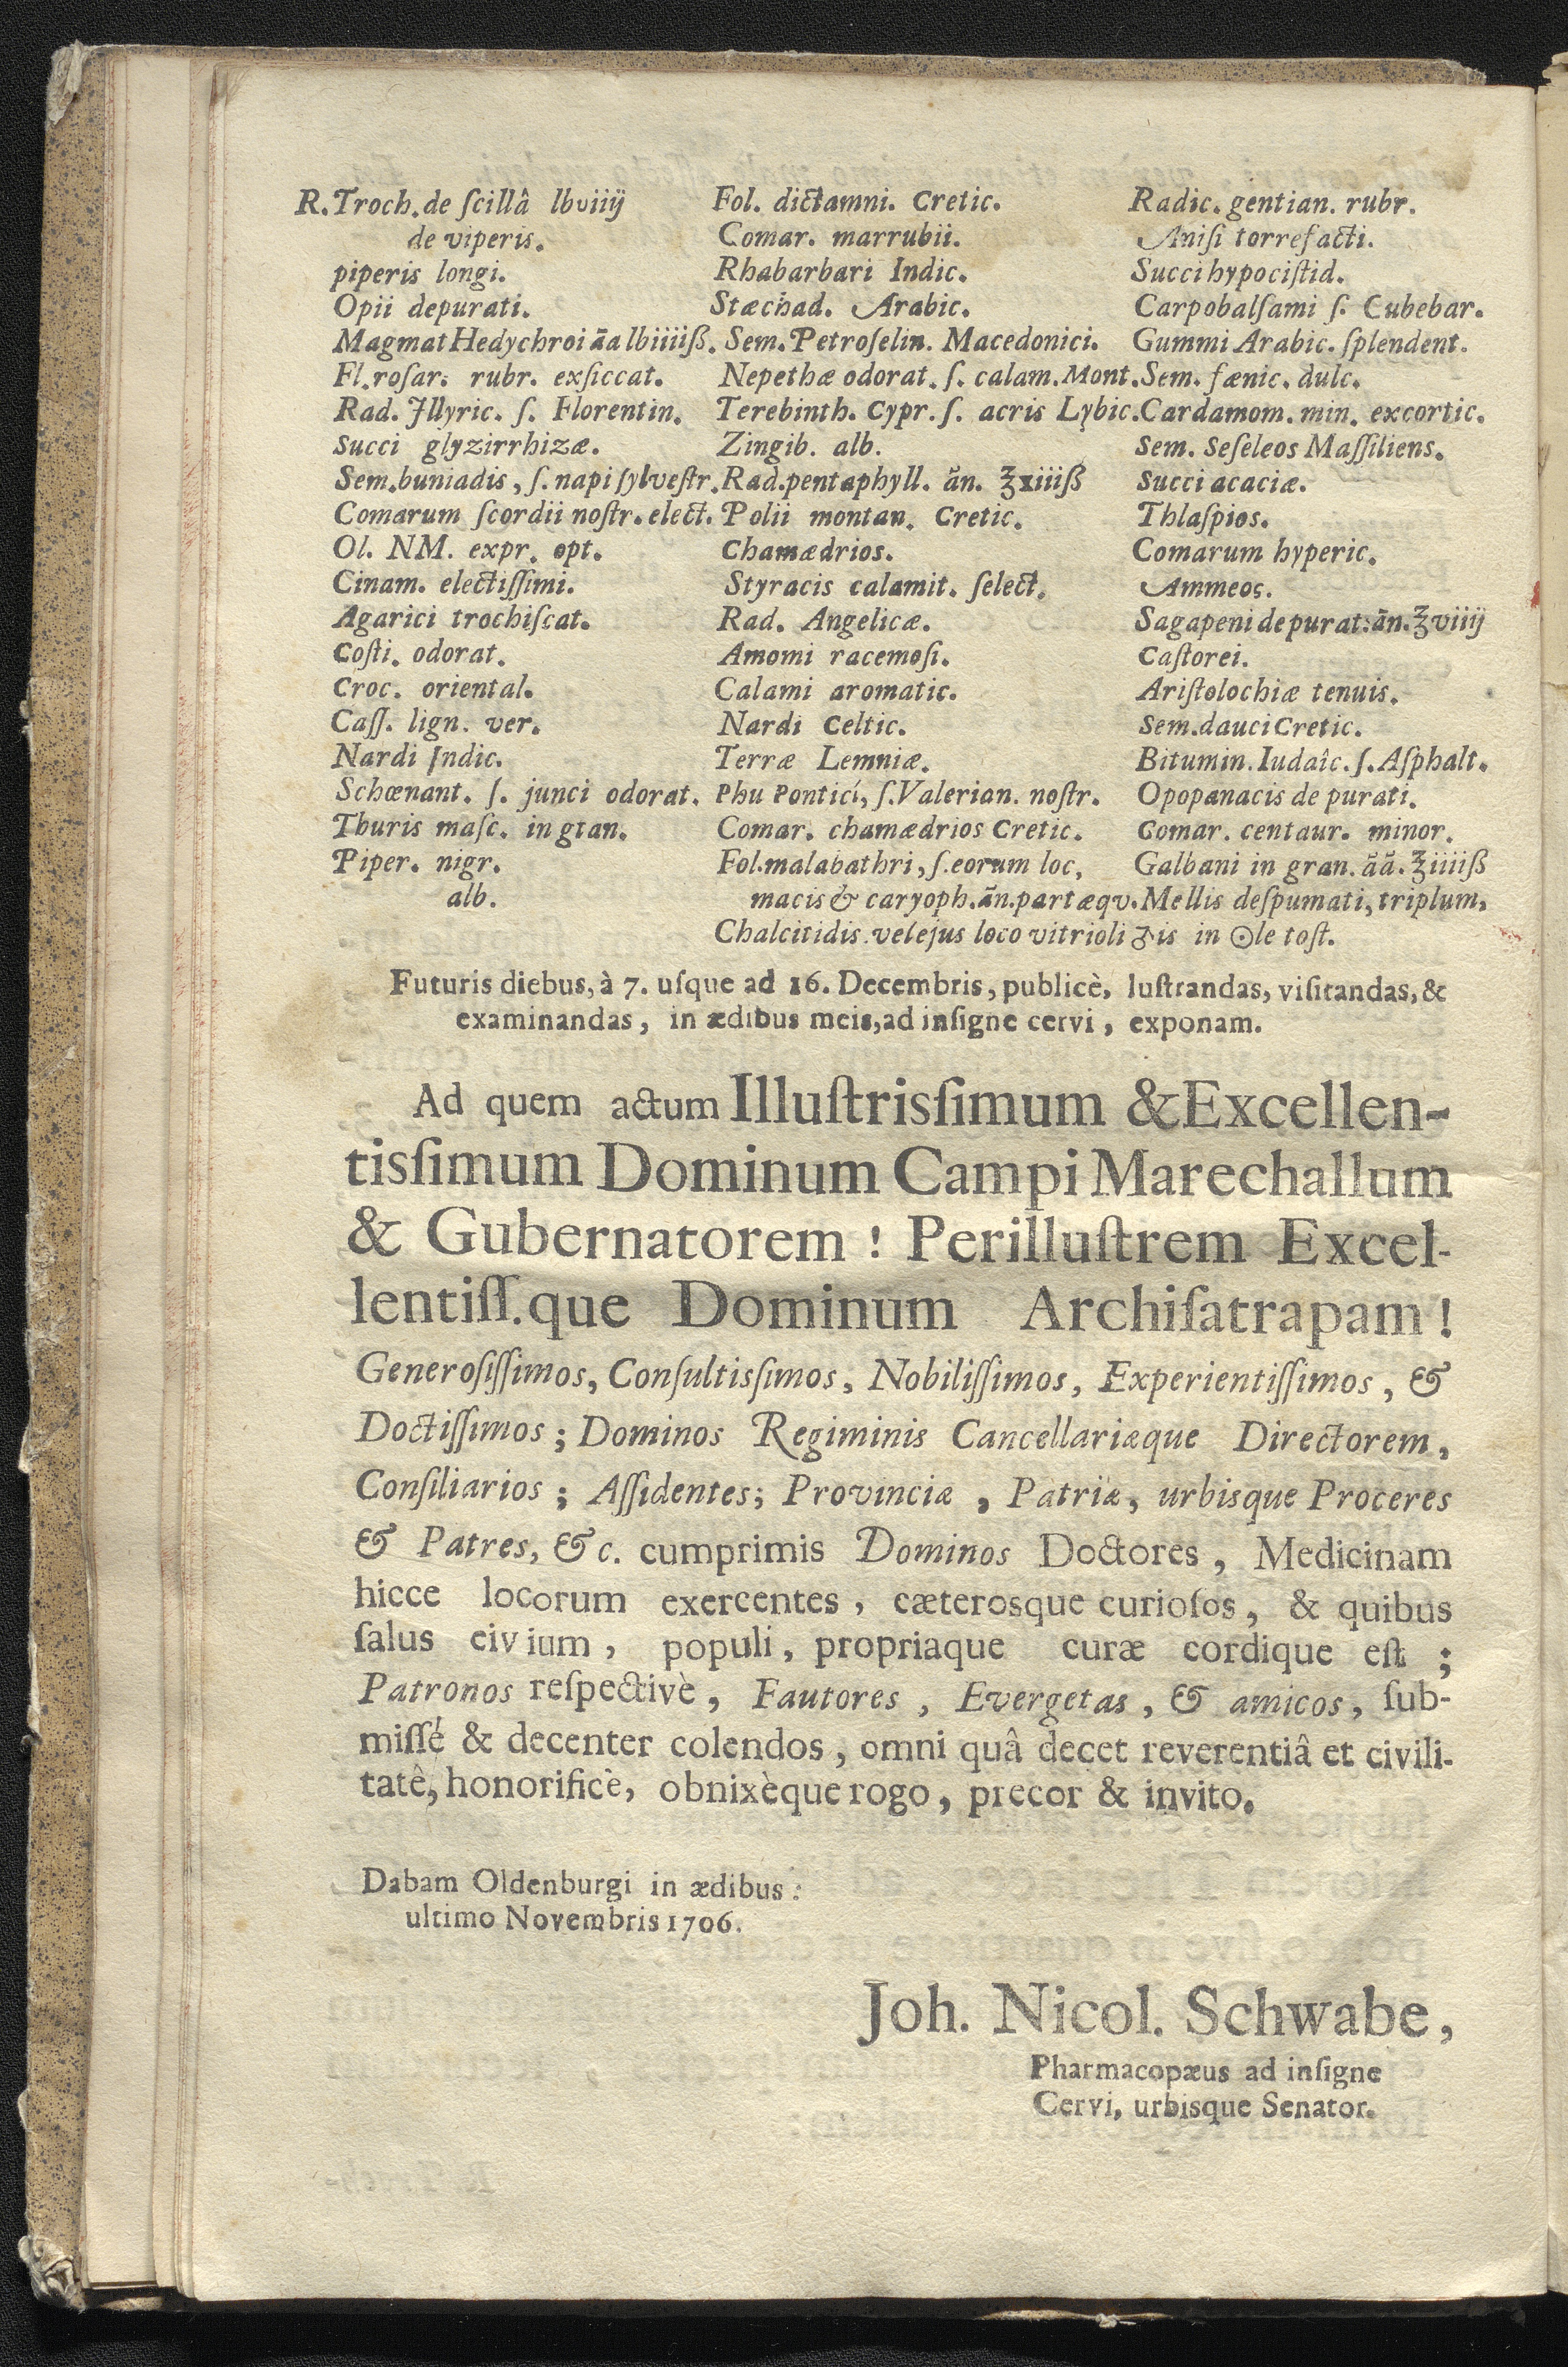 R. Troch. de ſcillâ lbviiij
de viperis.
piperis longi.
Opii depurati.
Magmat Hedychroi āa lbiiiiß.
Fl. roſar. rubr. exſiccat.
Rad. Jllyric. ſ. Florentin.
Succi glyzirrhizæ.
Sem. buniadis, ſ. napi ſylveſtr.
Comarum ſcordii noſtr. elect.
Ol. NM. expr. opt.
Cinam. electiſſimi.
Agarici trochiſcat.
Coſti. odorat.
Croc. oriental.
Caſſ. lign. ver.
Nardi Indic.
Schœnant. ſ. junci odorat.
Thuris maſc. in gran.
Piper. nigr.
alb.
Fol. dictamni. Cretic.
Comar. marrubii.
Rhabarbari Indic.
Stæchad. Arabic.
Sem. Petroſelin. Macedonici.
Nepethæ odorat. ſ. calam. Mont.
Terebinth. Cypr. ſ. acris Lybic.
Zingib. alb.
Rad. pentaphyll. ān. ℥xiiiß
Polii montan. Cretic.
Chamædrios.
Styracis calamit. ſelect.
Rad. Angelicæ.
Amomi racemoſi.
Calami aromatic.
Nardi Celtic.
Terræ Lemniæ.
Phu Pontici, ſ. Valerian. noſtr.
Comar. chamædrios Cretic.
Fol. malabathri, ſ. eorum loc,
macis & caryoph. ān. part æqv.
Chalcitidis. vel ejus loco vitrioli ♂is in ☉le toſt.
Radic. gentian. rubr.
Aniſi torrefacti.
Succi hypociſtid.
Carpobalſami ſ. Cubebar.
Gummi Arabic. ſplendent.
Sem. fænic. dulc.
Cardamom. min. excortic.
Sem. Seſeleos Maſſiliens.
Succi acaciæ.
Thlaſpios.
Comarum hyperic.
Ammeos.
Sagapeni depurat: ān. ℥viiij
Caſtorei.
Ariſtolochiæ tenuis.
Sem. dauci Cretic.
Bitumin. Iudaîc. ſ. Aſphalt.
Opopanacis de purati.
Comar. centaur. minor.
Galbani in gran. āā. ℥iiiiß
Mellis deſpumati, triplum,
Futuris diebus, à 7. uſque ad 16. Decembris, publicè, luſtrandas, viſitandas, &
examinandas, in ædibus meis, ad inſigne cervi, exponam.
Ad quem actum Illuſtrisſimum & Excellen-
tisſimum Dominum Campi Marechallum
& Gubernatorem ! Perilluſtrem Excel-
lentiſſ. que Dominum Archiſatrapam !
Generoſiſſimos, Conſultisſimos, Nobiliſſimos, Experientiſſimos, &
Doctiſſimos ; Dominos Regiminis Cancellariæque Directorem,
Conſiliarios ; Aſſidentes ; Provinciæ, Patriæ, urbisque Proceres
& Patres, &c. cumprimis Dominos Doctores, Medicinam
hicce locorum exercentes, cæterosque curioſos, & quibus
ſalus eivium, populi, propriaque curæ cordique eſt ;
Patronos reſpectivè, Fautores, Evergetas, & amicos, ſub-
miſſé & decenter colendos, omni quâ decet reverentiâ et civili-
tatê, honorificè, obnixèque rogo, precor & invito.
Dabam Oldenburgi in ædibus :
ultimo Novembris 1706.
Joh. Nicol. Schwabe,
Pharmacopæus ad inſigne
Cervi, urbisque Senator.